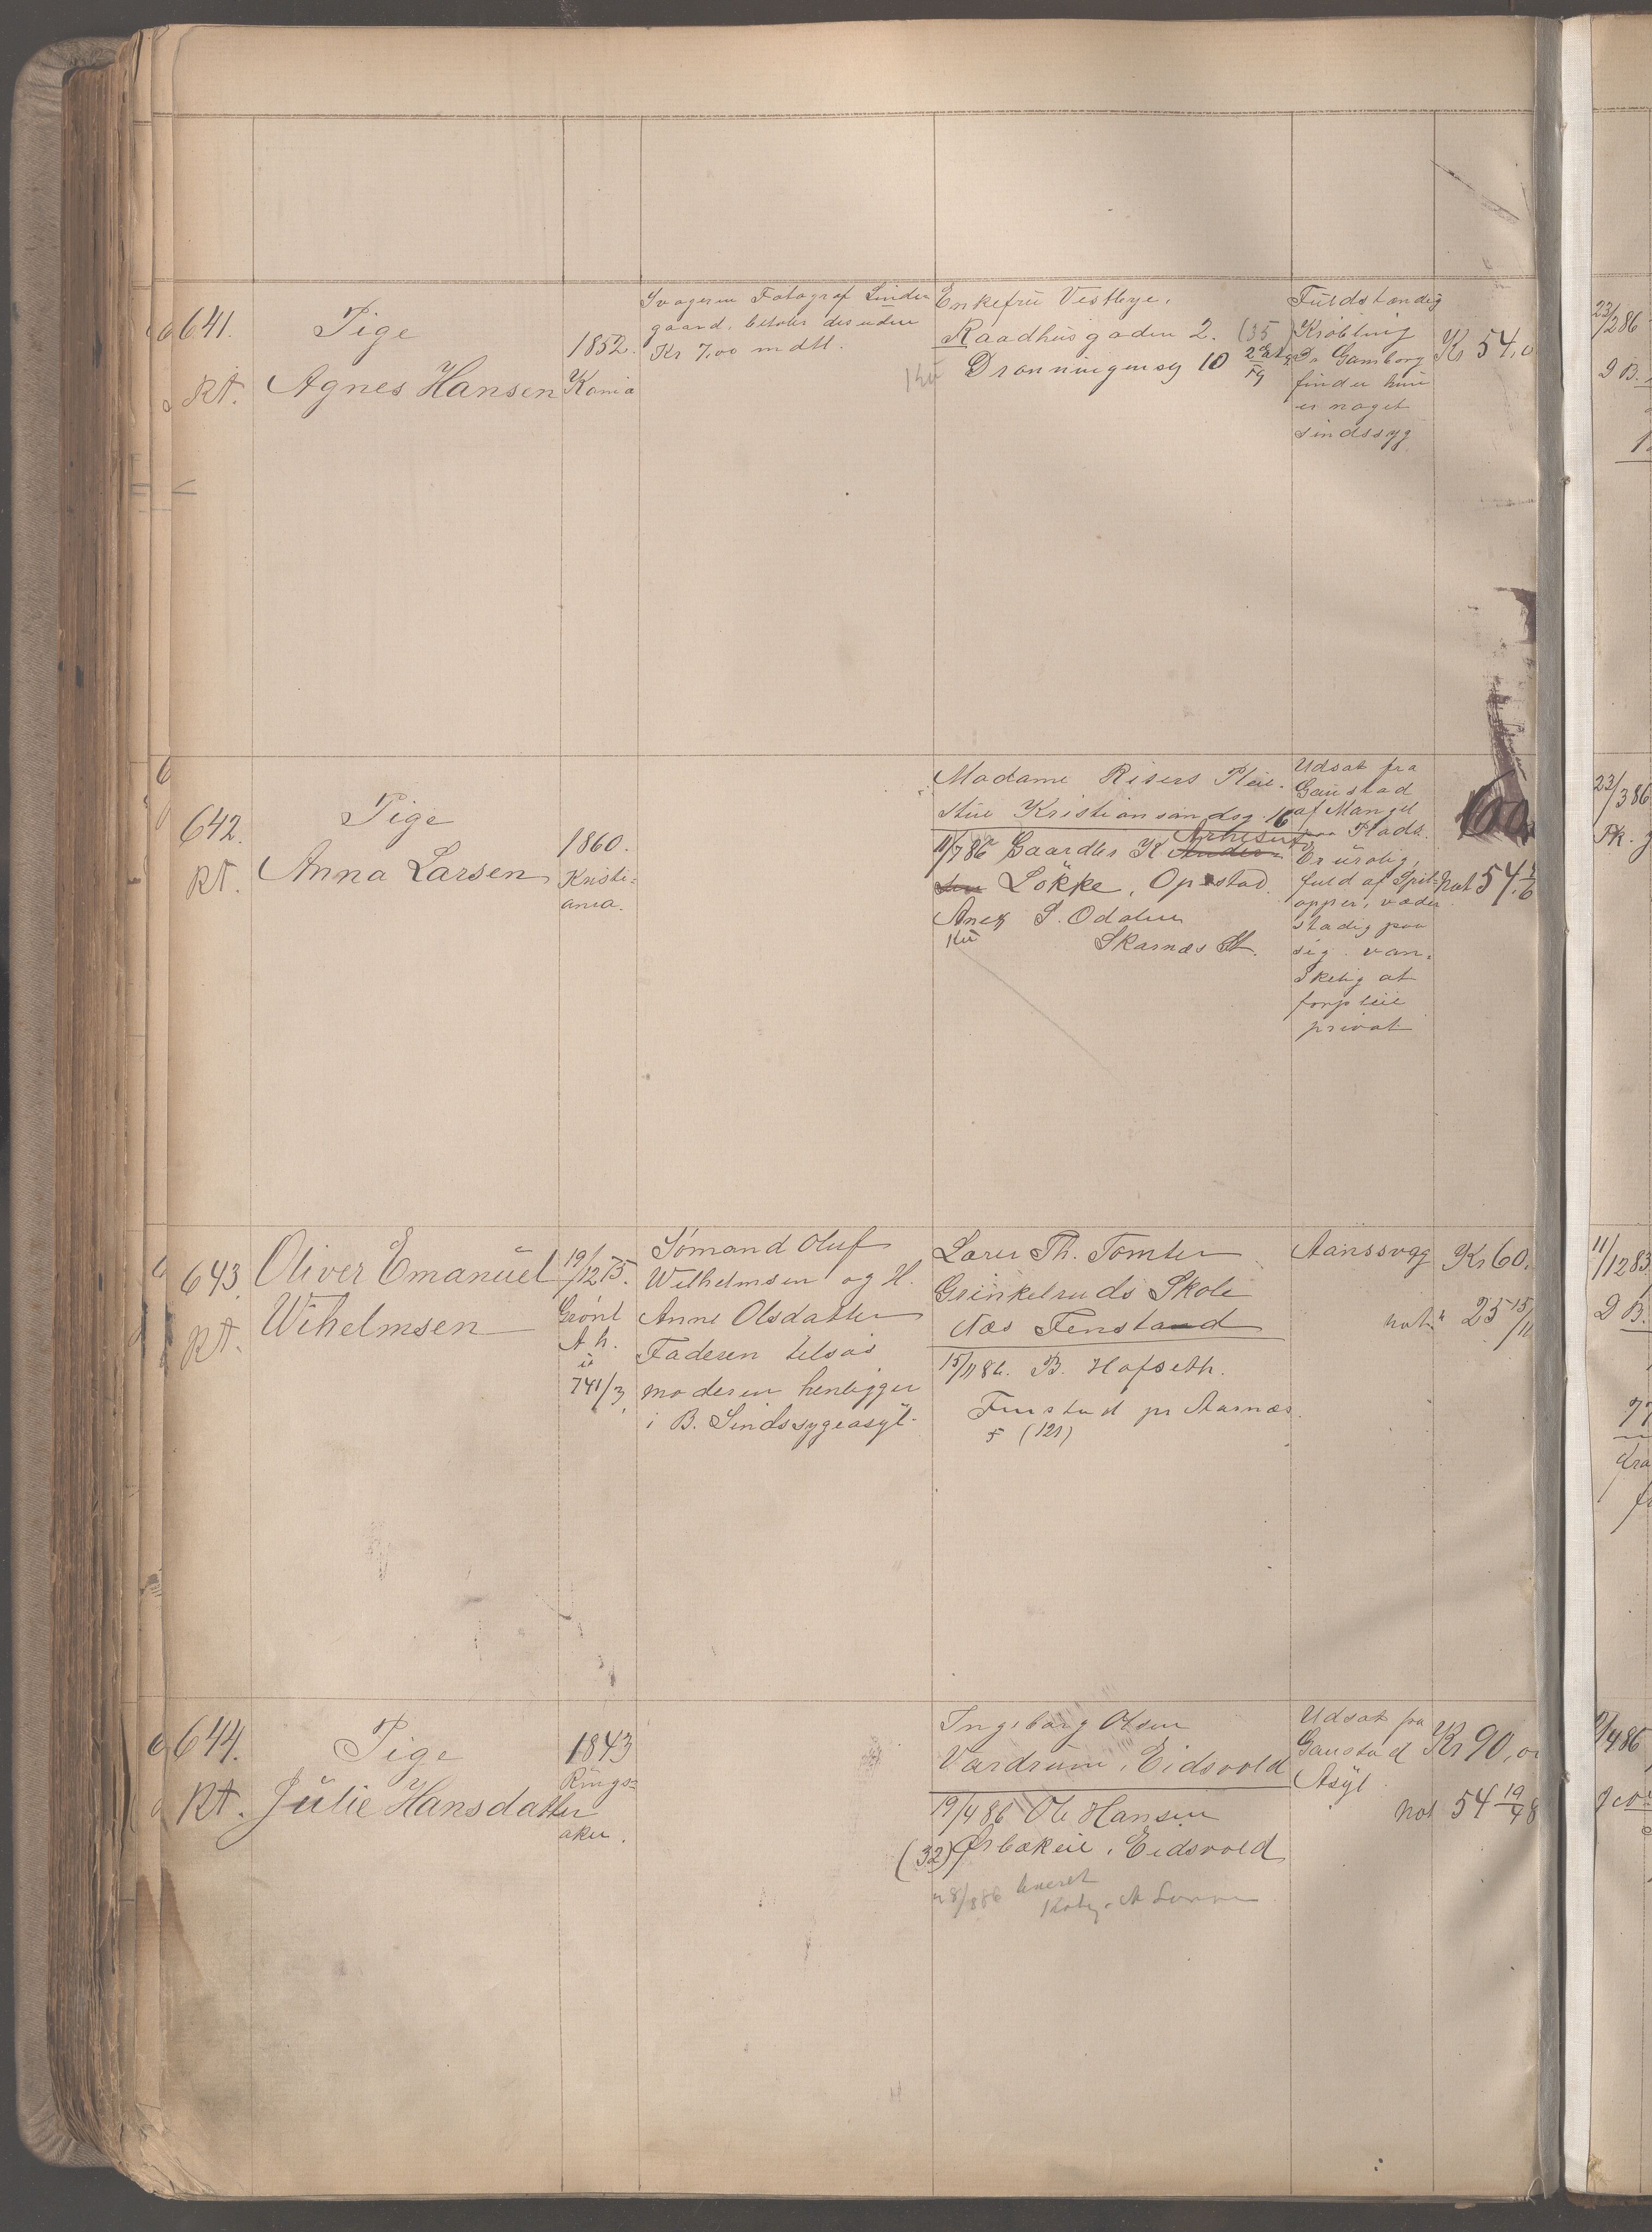 641.
Rt.
Pige
Agnes Hansen
1852.
Kania
Svogeren Fotograf Linde
gaard, betaler desuden
Kr 7,00 mdtl.
Enkefrü Vestbye,
Raadhüsgaden 2. (35)
Dronningensg 10
Füldstændig
Kröbling
Dr Gamborg
finder hün
er noget
sindssyg
Kr 54,0
23/286
642.
Rt.
Pige
Anna Larsen
1860.
Kristi=
ania.
Madame Risers Pleie-
stüe Kristiansandsg. 16
11/7 86 Gaardbr K
Lökke, Opstad.
Anex S. Odalen
Kü
Skarnæs St.
Udsat fra
Gaustad
af Mangel
paa Plads.
Er ürolig,
füld af Spil-
opper, væder
stadig paa
sig. van-
skelig at
forpleie
privat
not 54
23/386
643.
Rt.
Oliver Emanüel
Wihelmsen
19/12 75.
Grönl
A h.
741/3,
Sömand Oluf
Wilhelmsen og H.
Anne Olsdatter
Faderen tilsös
moderen henligger
i B. Sindssygeasyl.
Lærer Th. Tomter
Grinkelruds Skole
Næs Fenstad
15/11 86. B. Hofseth.
Fenstad pr Aarnæs.
(121)
Aanssvag
Kr 60.
not. 25 15/11
11/1283
644.
Rt.
Pige
Jülie Hansdatter
1843
Rings=
aker.
Ingeborg Olsen
Værdrüm, Eidsvold
19/4 86 Ole Hansen
(32) Ørbækeie, Eidsvold
Udsat fra
Gaustad
Asyl
Kr 90,0
not 54 19/4 8